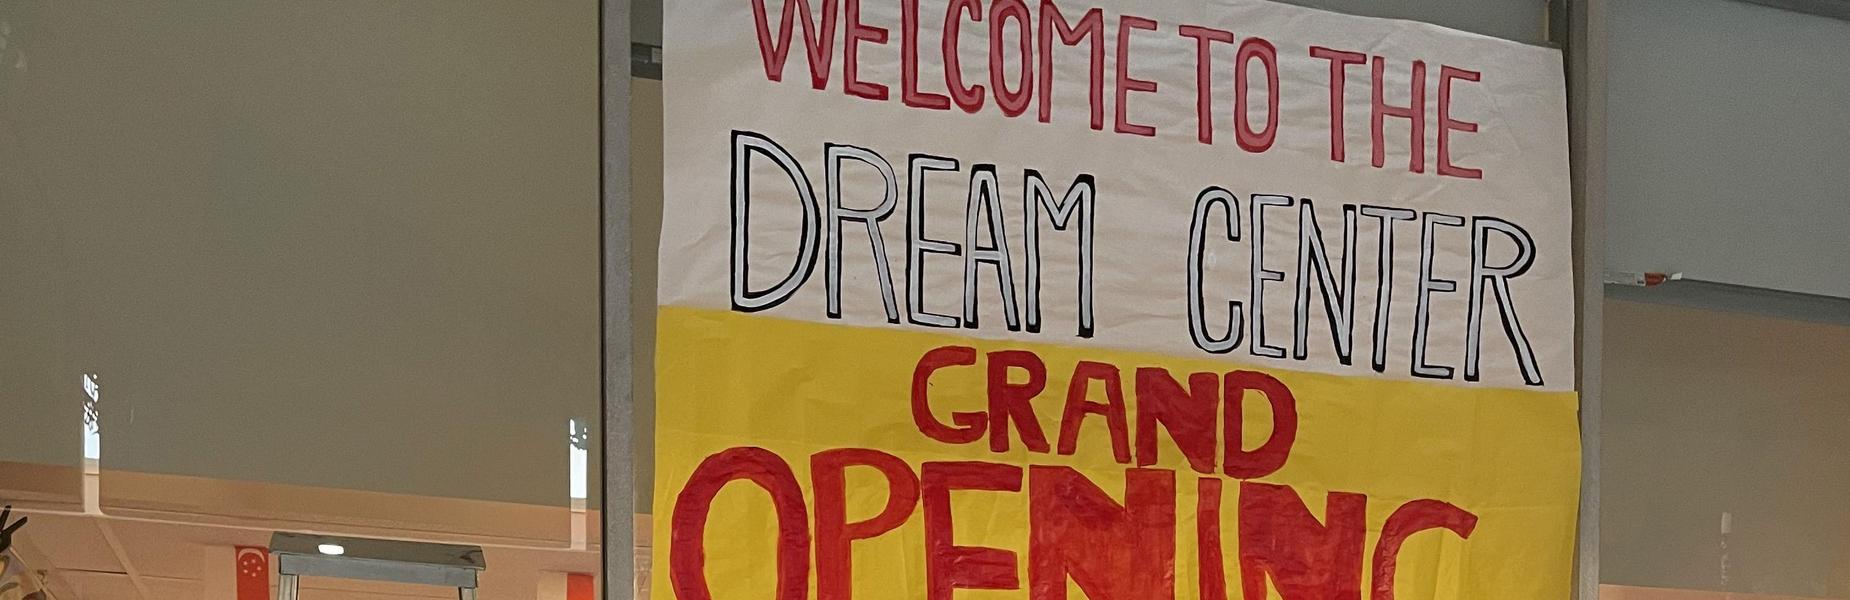 WELCOME TO THE
DREAM CENTER
GRAND
OPENING